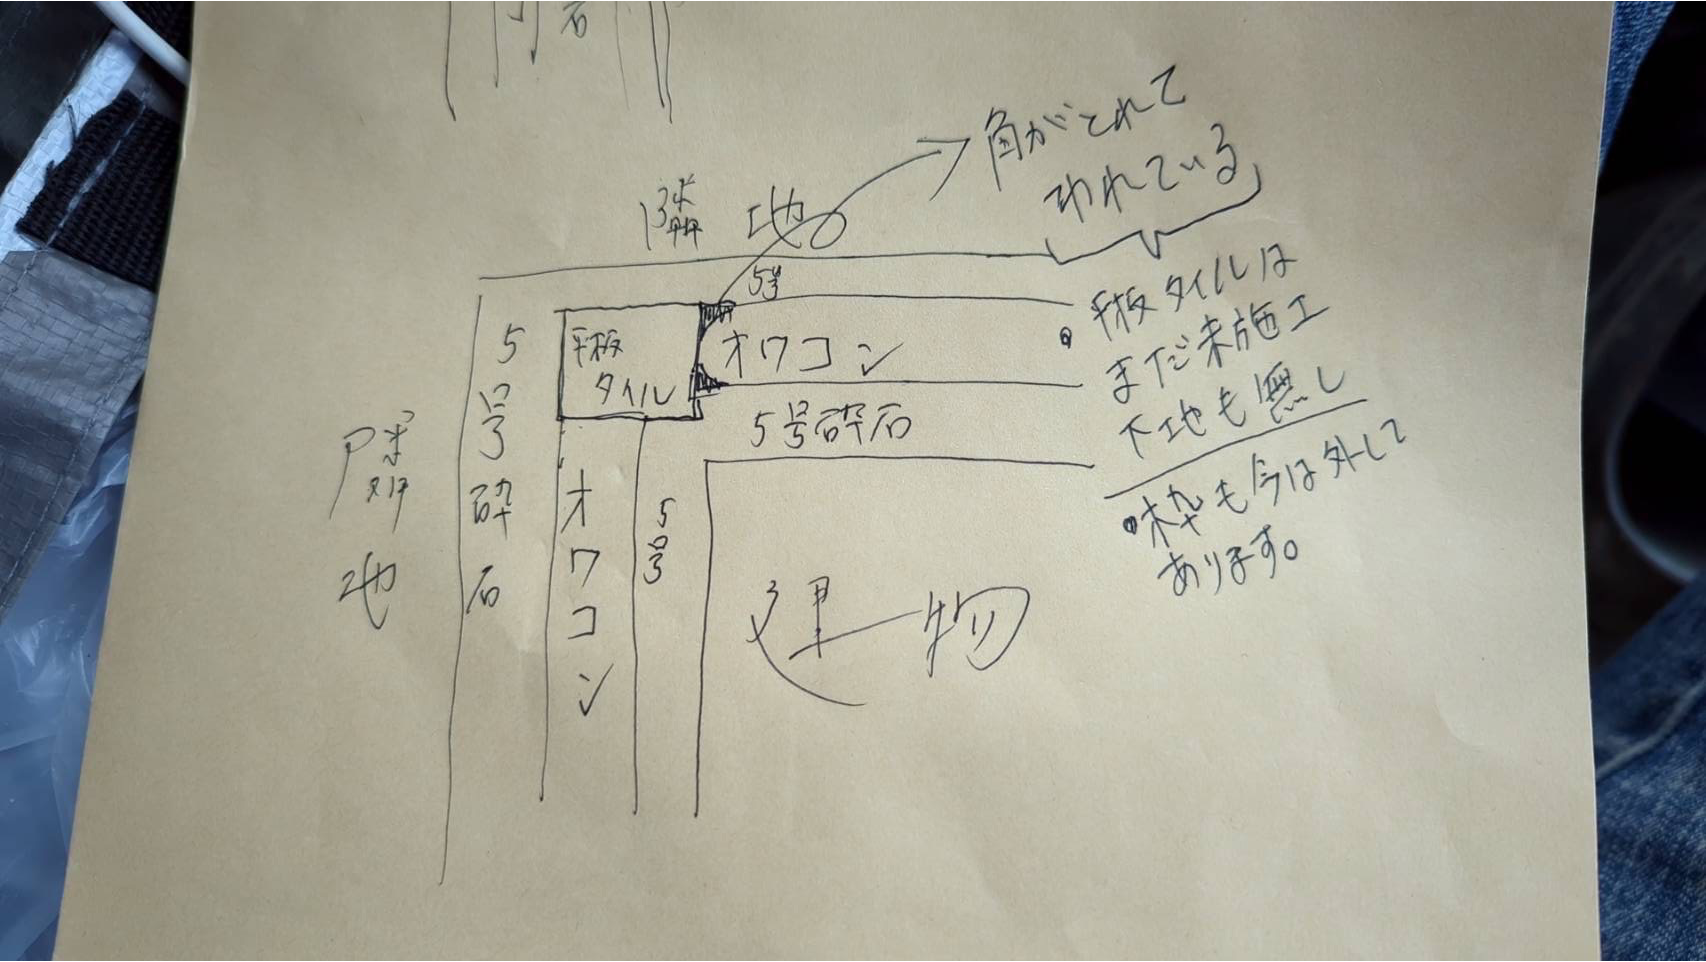 石
角がとれて
われている
隣地
5号
平板
タイル
オワコン
5号砕石
5号砕石
隣地
オワコン
5号
建物
・平板タイルは
まだ未施工
下地も無し
・枠も今は外して
あります。